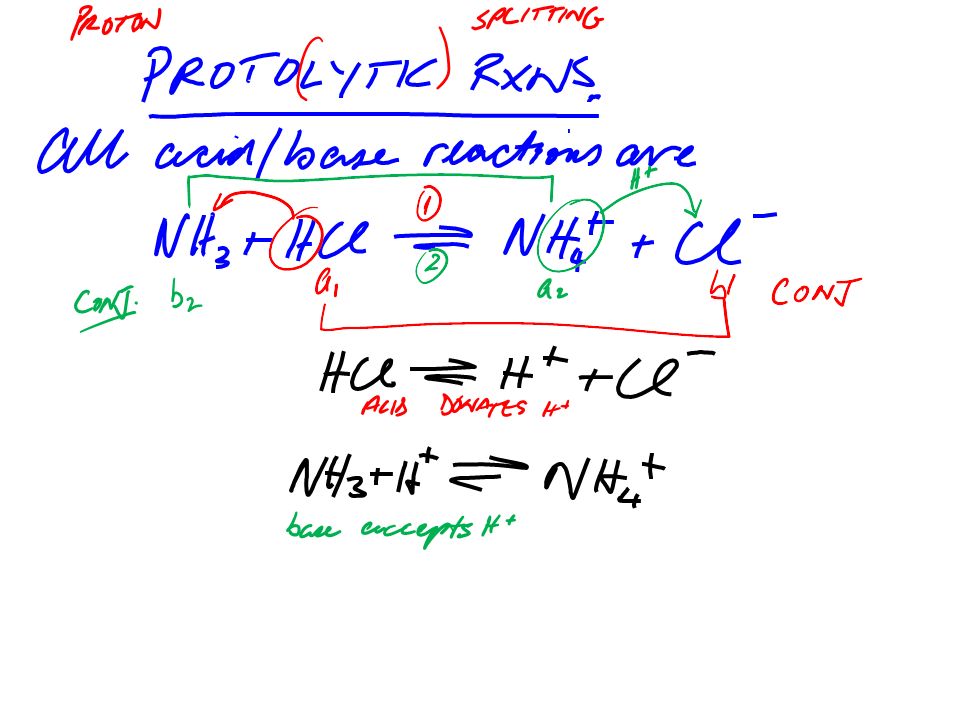 PROTON SPLITTING
PROTO(LYTIC) RXNS.
All acid/base reactions are
H+
① 
NH3 + HCl ⇌ NH4+ + Cl−
②
CONJ. b2 a1 a2 b1 CONJ
HCl ⇌ H+ + Cl−
ACID DONATES H+
NH3 + H+ ⇌ NH4+
base accepts H+